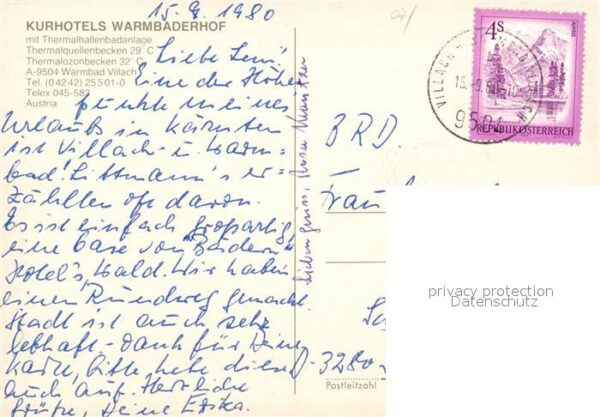 15.9.1980
KURHOTELS WARMBADERHOF
mit Thermalhallenbadanlage
Thermalquellenbecken 29° C
Thermalozonbecken 32° C
A-9504 Warmbad Villach
Tel. (0 42 42) 2 55 01-0
Telex 045-583
Austria
Liebe Leni
Eine der Höhe-
punkte meines
Urlaubs in Kärnten
ist Villach- u. Warm-
bad! Littmann's er-
zählten oft davon.
Es ist einfach großartig,
eine Oase von "Bädern"
Hotel's, Wald. Wir haben
einen Rundweg gemacht.
Stadt ist auch sehr
lebhaft - Dank für Deine
Karte, bitte hebe diese
auch auf. Herzliche
Grüße, Deine Erika.
Lieben Gruss,
4S
REPUBLIK ÖSTERREICH
VILLACH
9504
BRD.
Frau
3280
Postleitzahl
privacy protection
Datenschutz